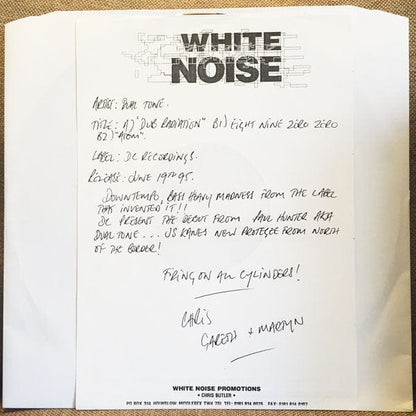 WHITE
NOISE
ARTIST: DUAL TONE.
TITLE: A) "DUB RADIATION" B1) EIGHT NINE ZERO ZERO
B2) "ATOM".
LABEL: DC RECORDINGS.
RELEASE: JUNE 19TH 95.
DOWNTEMPO, BASS HEAVY MADNESS FROM THE LABEL
THAT INVENTED IT!!
DC PRESENT THE DEBUT FROM PAUL HUNTER AKA
DUAL TONE... JS KANES NEW PROTEGEE FROM NORTH
OF THE BORDER!
FIRING ON ALL CYLINDERS!
CHRIS
GARETH + MARTYN
WHITE NOISE PROMOTIONS
• CHRIS BUTLER •
PO BOX 314, HOUNSLOW, MIDDLESEX, TEL: